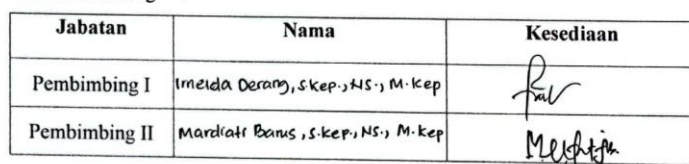 Jabatan Nama Kesediaan
Pembimbing I Imelda Derang, S.Kep., NS., M.Kep
Pembimbing II Mardiati Barus, S.Kep., NS., M.Kep